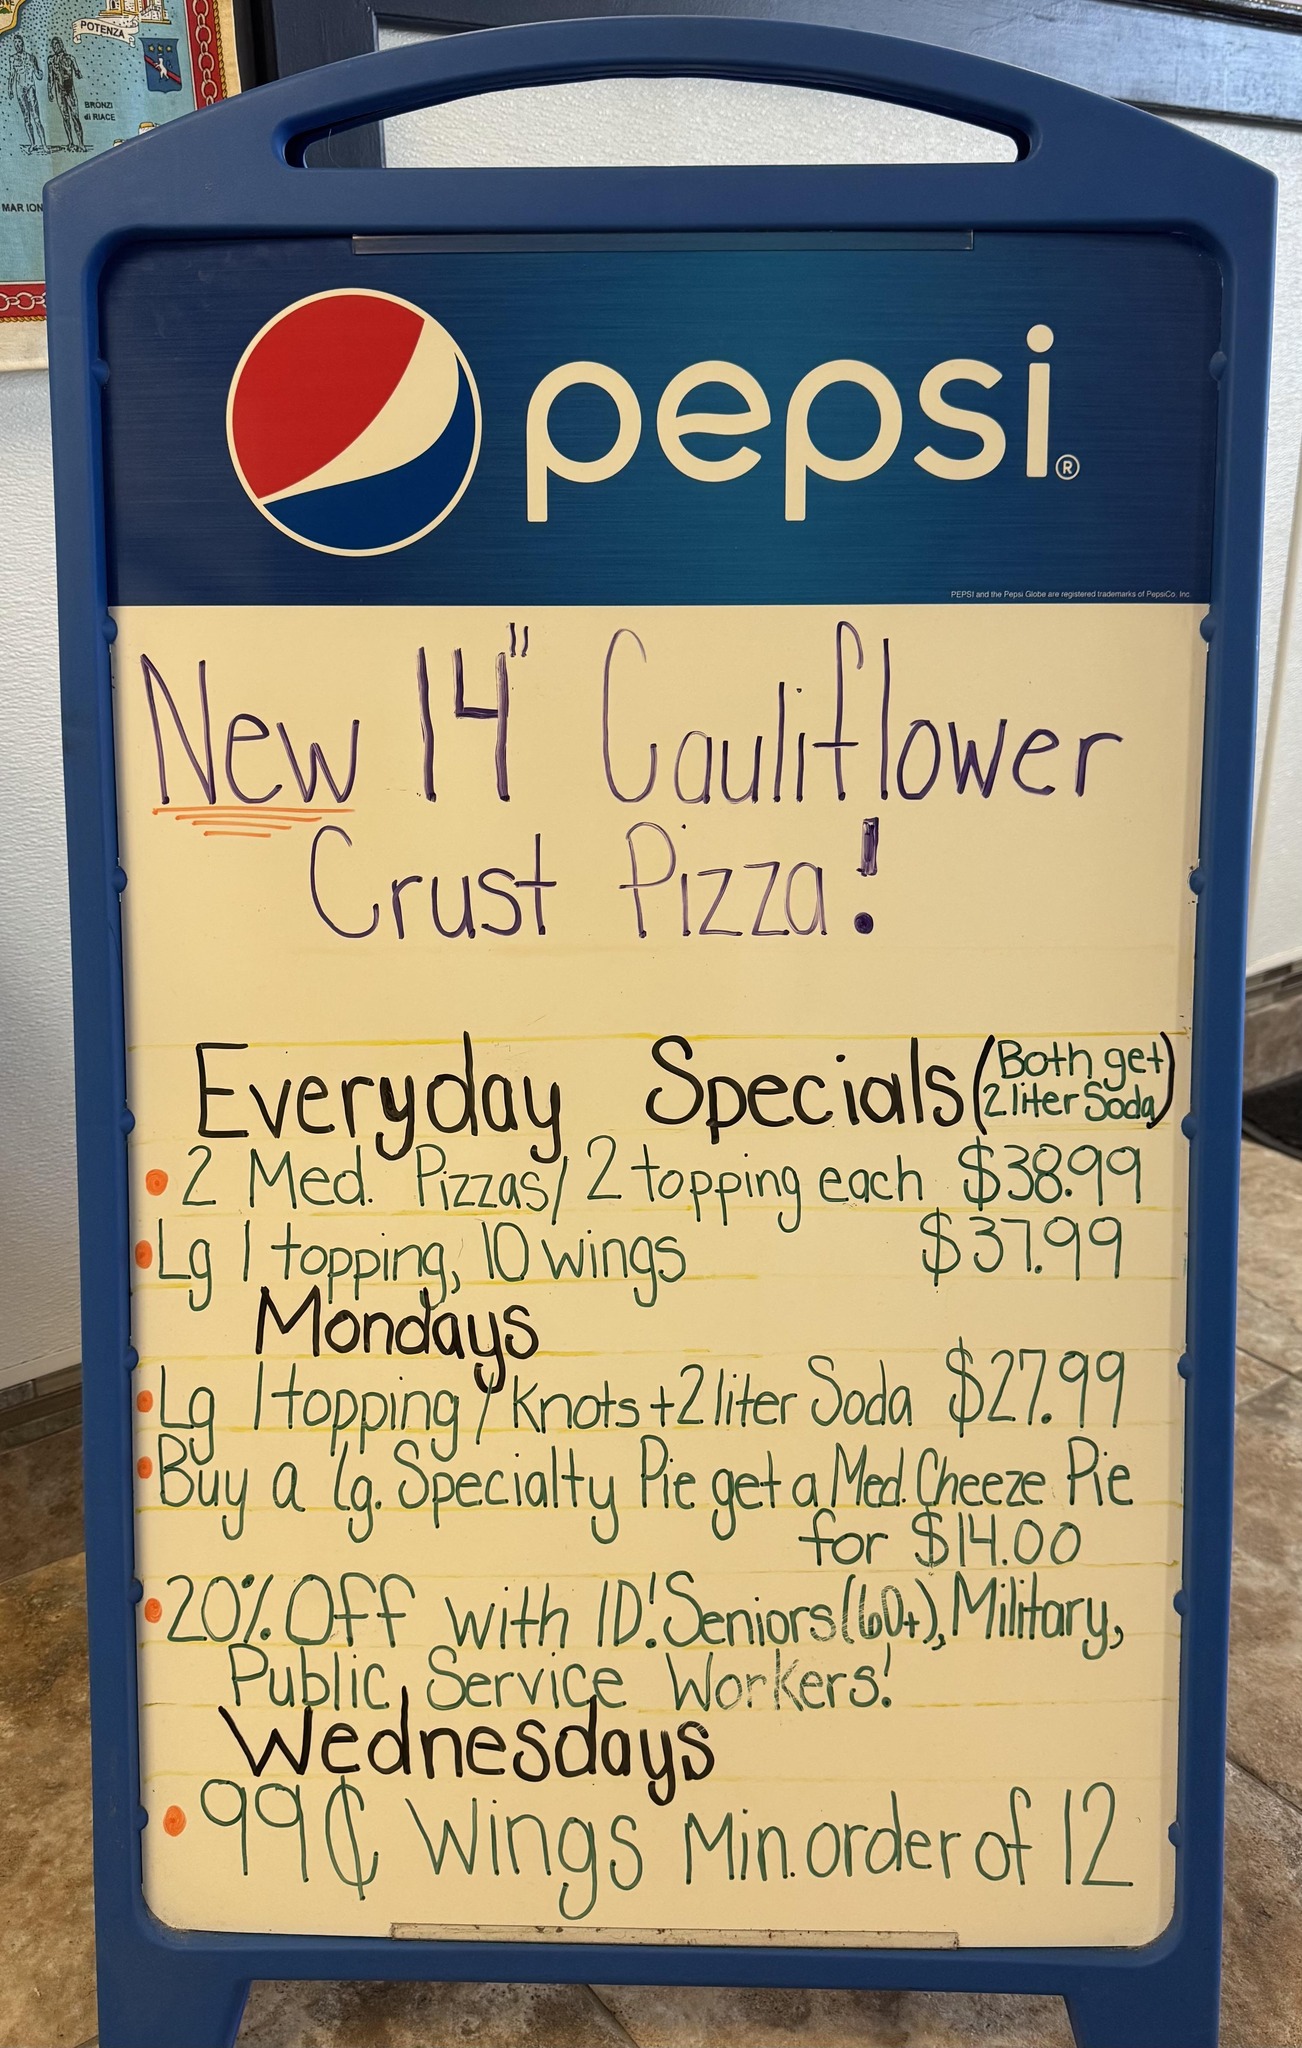 POTENZA
BRONZI
di RIACE
MAR ION
pepsi®
PEPSI and the Pepsi Globe are registered trademarks of PepsiCo, Inc.
New 14" Cauliflower
Crust Pizza!
Everyday Specials (Both get
2 liter Soda)
• 2 Med. Pizzas/ 2 topping each $38.99
• Lg 1 topping, 10 wings $37.99
Mondays
• Lg 1 topping / Knots + 2 liter Soda $27.99
• Buy a lg. Specialty Pie get a Med. Cheeze Pie
for $14.00
• 20% Off with ID! Seniors (60+), Military,
Public Service Workers!
Wednesdays
• 99¢ Wings Min. order of 12